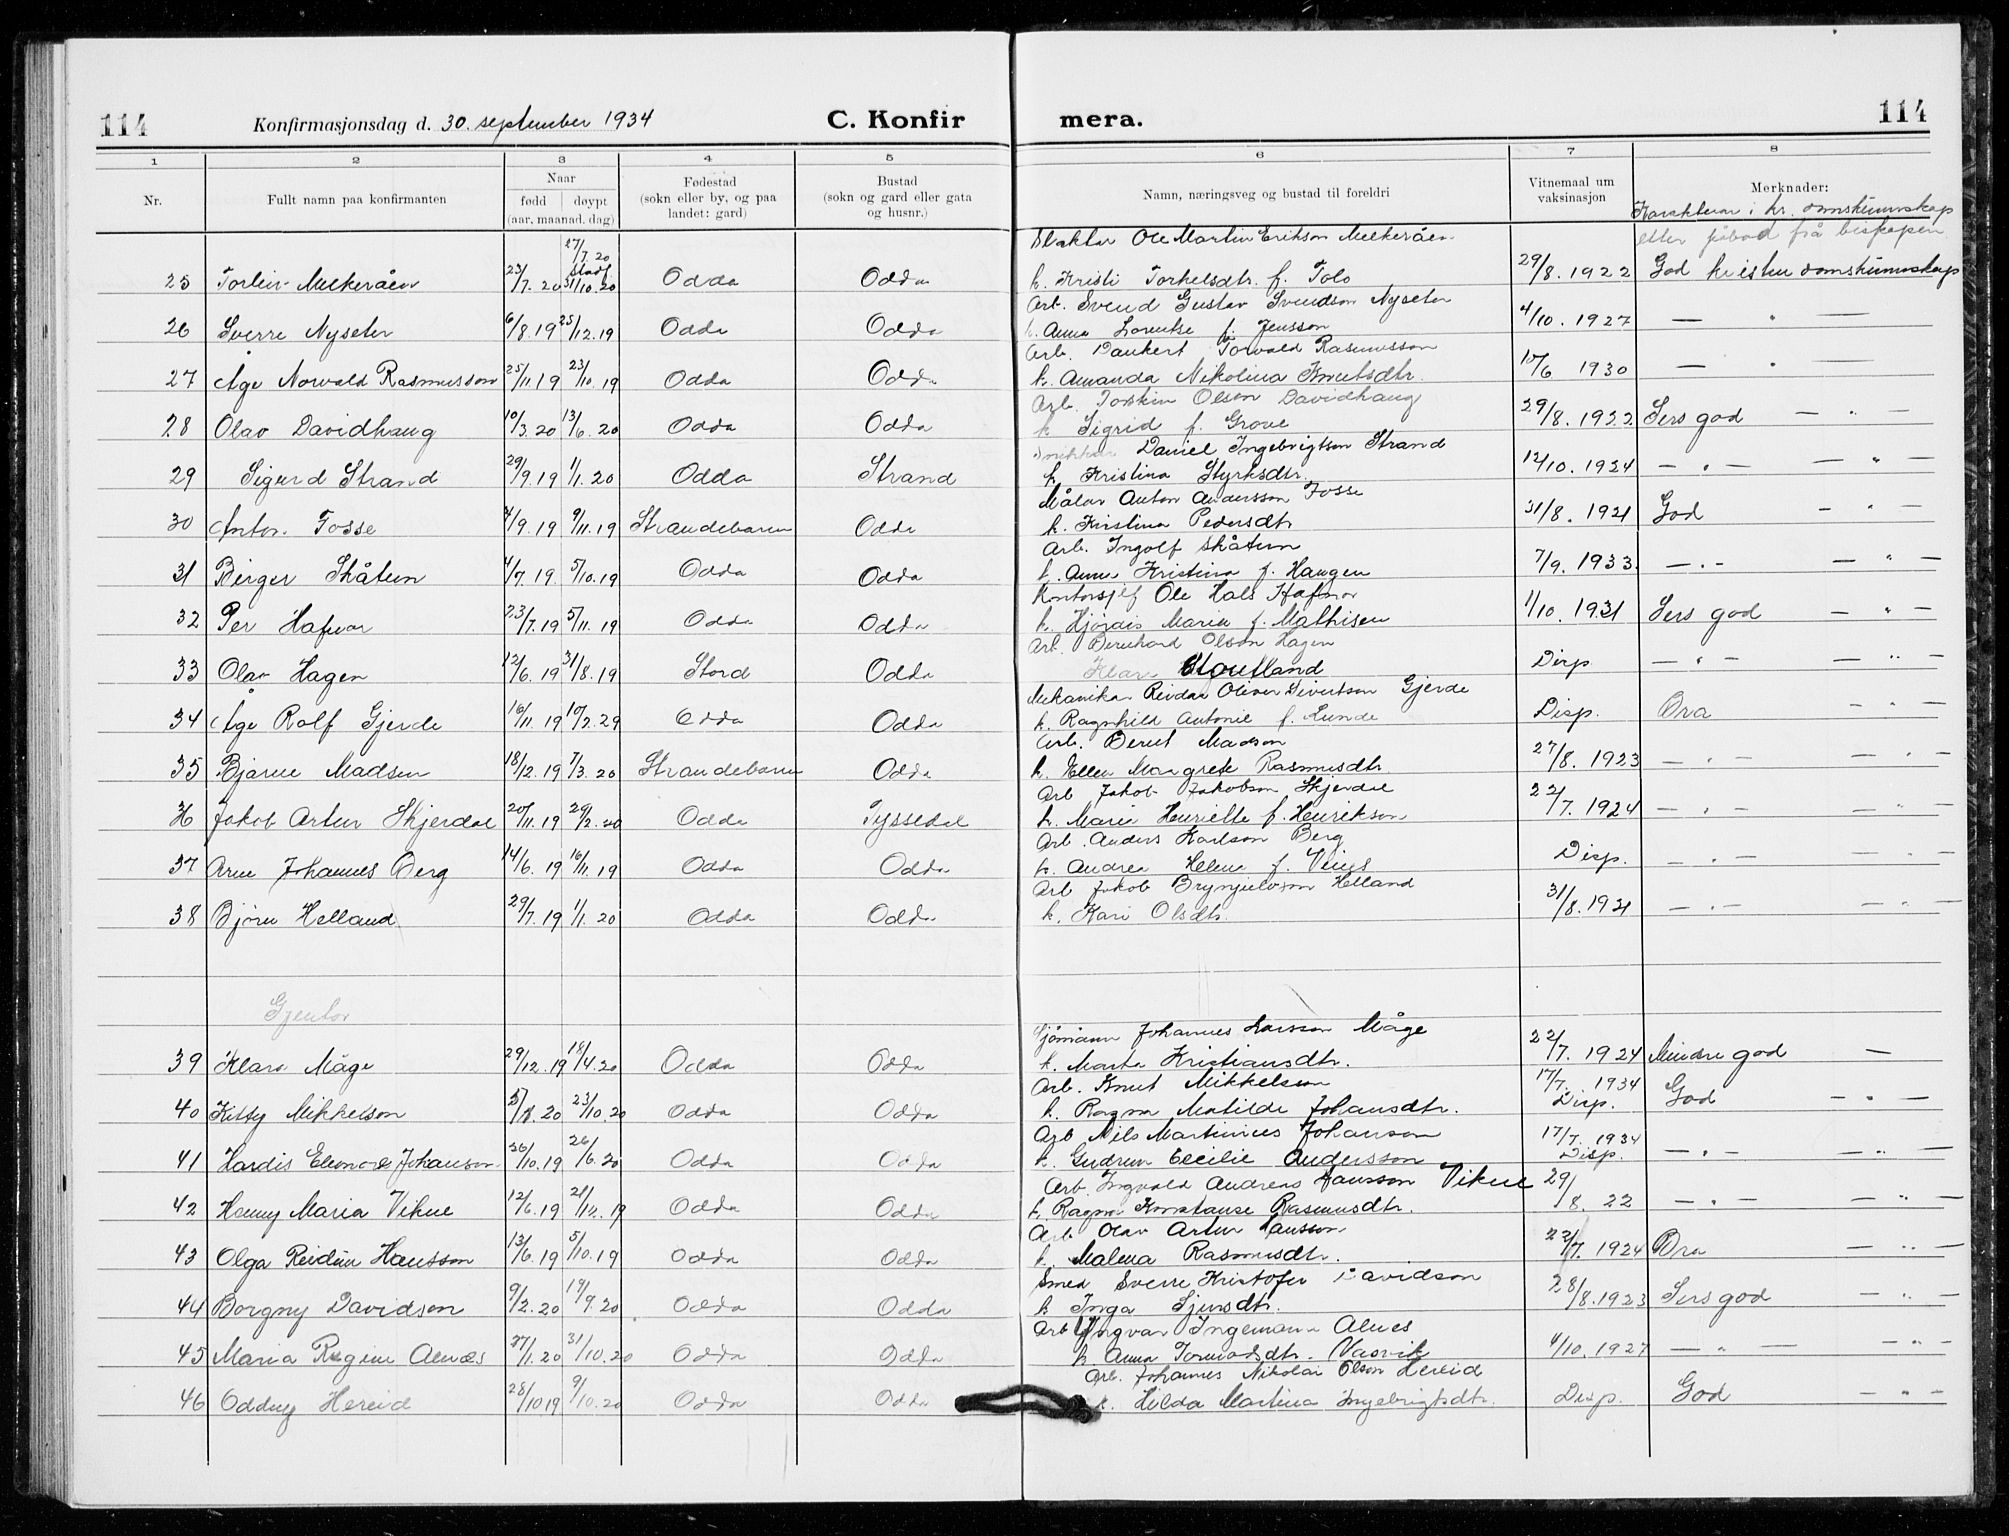 114 Konfirmasjonsdag d. 30. september 1934 C. Konfir mera. 114
1 2 3 4 5 6 7 8
Nr. Fullt namn paa konfirmanten Naar Fødestad Bustad Namn, næringsveg og bustad til foreldri Vitnemaal um Merknader:
født døypt (sokn eller by, og paa (sokn og gard eller gata vaksinasjon
(aar, maanad, dag) landet: gard) og husnr.)
Karakterar i kr. domskunnskap
etter påbod frå biskopen
17/7.20 Slaktar Ole Martin Erikson Melkeråen
stadf.
25 Torleiv Melkeråen 23/7. 20 31/10.20 Odda Odda k. Kristi Torkelsdtr. f. Tolo 29/8. 1922 God kristendomskunnskap
Arb. Svend Gustav Svendson Nyseter
26 Sverre Nyseter 6/8.19 25/12.19 Odda Odda k. Anna Lorentse f. Jensson 4/10. 1927 — " —
Arb. Dankert Torvald Rasmusson
27 Åge Norvald Rasmusson 25/11.19 23/10.19 Odda Odda k. Amanda Nikolina Knutsdtr. 10/6 1930 — " —
Arb. Torstein Olson Davidhaug
28 Olav Davidhaug 10/3.20 13/6.20 Odda Odda k Sigrid f. Grove 29/8. 1922 Sers god — " —
Snikkar Daniel Ingebrigtson Strand
29 Sigurd Strand 29/9.19 1/1.20 Odda Strand k. Kristina Styrksdtr. 12/10. 1924 — " — — " —
Målar Anton Andersson Fosse
30 Anton Fosse 4/9.19 9/11.19 Strandebarm Odda k. Kirstina Pedersdtr 31/8. 1921 God — " —
Arb. Ingolf Skåtun
31 Birger Skåtun 4/7.19. 5/10.19 Odda Odda k. Anna Kristina f. Haugen 7/9. 1933. — " — — " —
Kontorsjef Ole Hals Hafnor
32 Per Hafnor 23/7.19 5/11.19 Odda Odda k. Hjørdis Maria f. Mathisen 1/10. 1931 Sers god — " —
Arb. Bernhard Olson Hagen
33 Olav Hagen 12/6.19 31/8.19 Stord Odda Klara Disp. — " — — " —
Mekanikar Reidar Oliver Sivertson Gjerde
34 Åge Rolf Gjerde 16/11.19 10/2.29 Odda Odda k. Ragnhild Antonie f. Lunde Disp. Bra — " —
Arb. Berut Madson
35 Bjarne Madsen 18/12.19 7/3.20 Strandebarm Odda k. Ellen Margrete Rasmusdtr. 27/8. 1923 — " — — " —
Arb Jakob Jakobson Skjerdal
36 Jakob Artur Skjerdal 20/11.19 29/2.20 Odda Tyssedal k. Marie Henriette f. Henrikson 22/7. 1924 — " — — " —
Arb. Anders Karlson Berg
37 Arne Johannes Berg 14/6.19 16/11.19 Odda Odda k. Andrea Helene f. Disp. — " — — " —
Arb Jakob Brynjulvson Helland
38 Bjørn Helland 29/7.19 1/1.20 Odda Odda k. Kari Olsdtr. 31/8. 1921 — " — — " —
Gjentor
Sjømann Johannes Larsson Måge
39 Klara Måge 29/12.19 18/4.20 Odda Odda k. Marta Kristiansdtr. 22/7. 1924 Mindre god —
Arb. Knut Mikkelson 17/7. 1934
40 Kitty Mikkelson 5/8.20 23/10.20 Odda Odda k. Ragna Matilde Johansdtr. Disp. God — " —
Arb Nils Martinius Johanson 17/7. 1934
41 Hardis Eleonore Johanson 26/10.19 26/6.20 Odda Odda k. Gudrun Cecilie Andersson Disp. — " — — " —
Arb. Ingvald Andreas Hansson Vikne
42 Henny Maria Vikne 12/6.19 21/12.19 Odda Odda k. Ragna Konstanse Rasmusdtr. 29/8. 22 — " — — " —
Arb Olav Artur Hansson
43 Olga Reidun Hansson 13/6.19 5/10.19 Odda Odda k. Malena Rasmusdtr. 22/7. 1924 Bra — " —
Smed Sverre Kristofer Davidson
44 Borgny Davidson 9/2.20 19/9.20 Odda Odda k Inga Sjursdtr. 28/8.1923 Sers god — " —
Arb Yngvar Ingemann Alnes
45 Maria Regine Alnæs 27/1.20 31/10.20 Odda Odda k Anna Tormodsdtr. Vasvik 4/10. 1927 — " — — " —
Arb. Johannes Nikolai Olson Hereid
46 Oddny Hereid 28/10 19 9/10.20 Odda Odda k. Hilda Martina Ingebrigtsdtr. Disp. God — " —